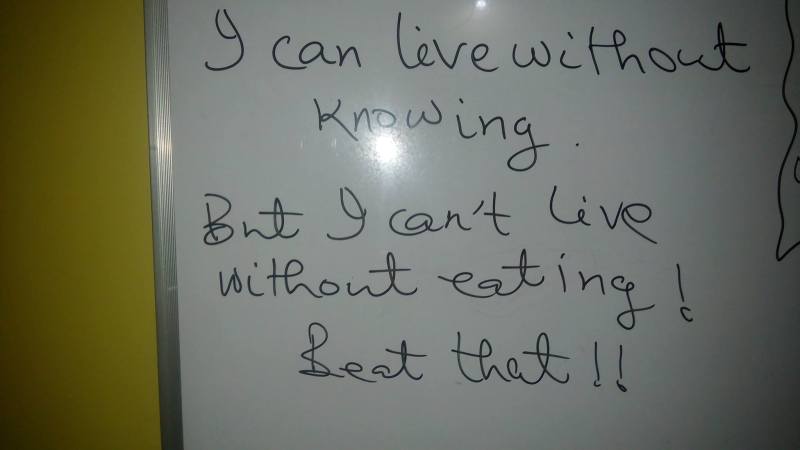 I can live without
Knowing.
But I can't live
without eating!
Beat that!!